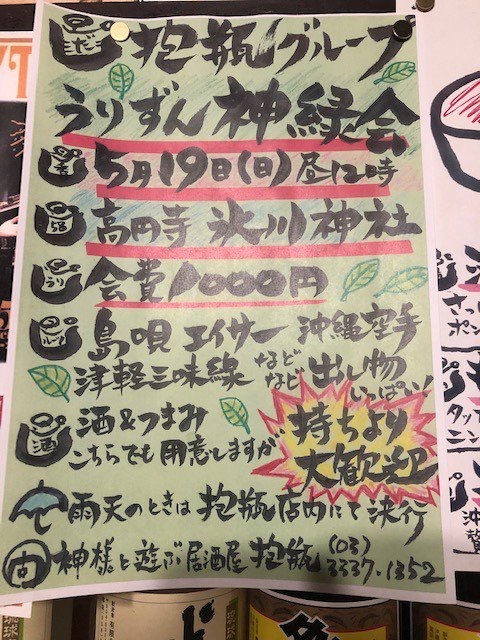 抱瓶グループ
うりずん神緑会
5月19日(日)昼12時
高円寺 氷川神社
会費1000円
島唄 エイサー 沖縄空手
津軽三味線 などなど 出し物いっぱい!
酒&つまみ
こちらでも用意しますが
持ちより
大歓迎
雨天のときは抱瓶店内にて決行
神様と遊ぶ居酒屋 抱瓶 (03)3337-1352